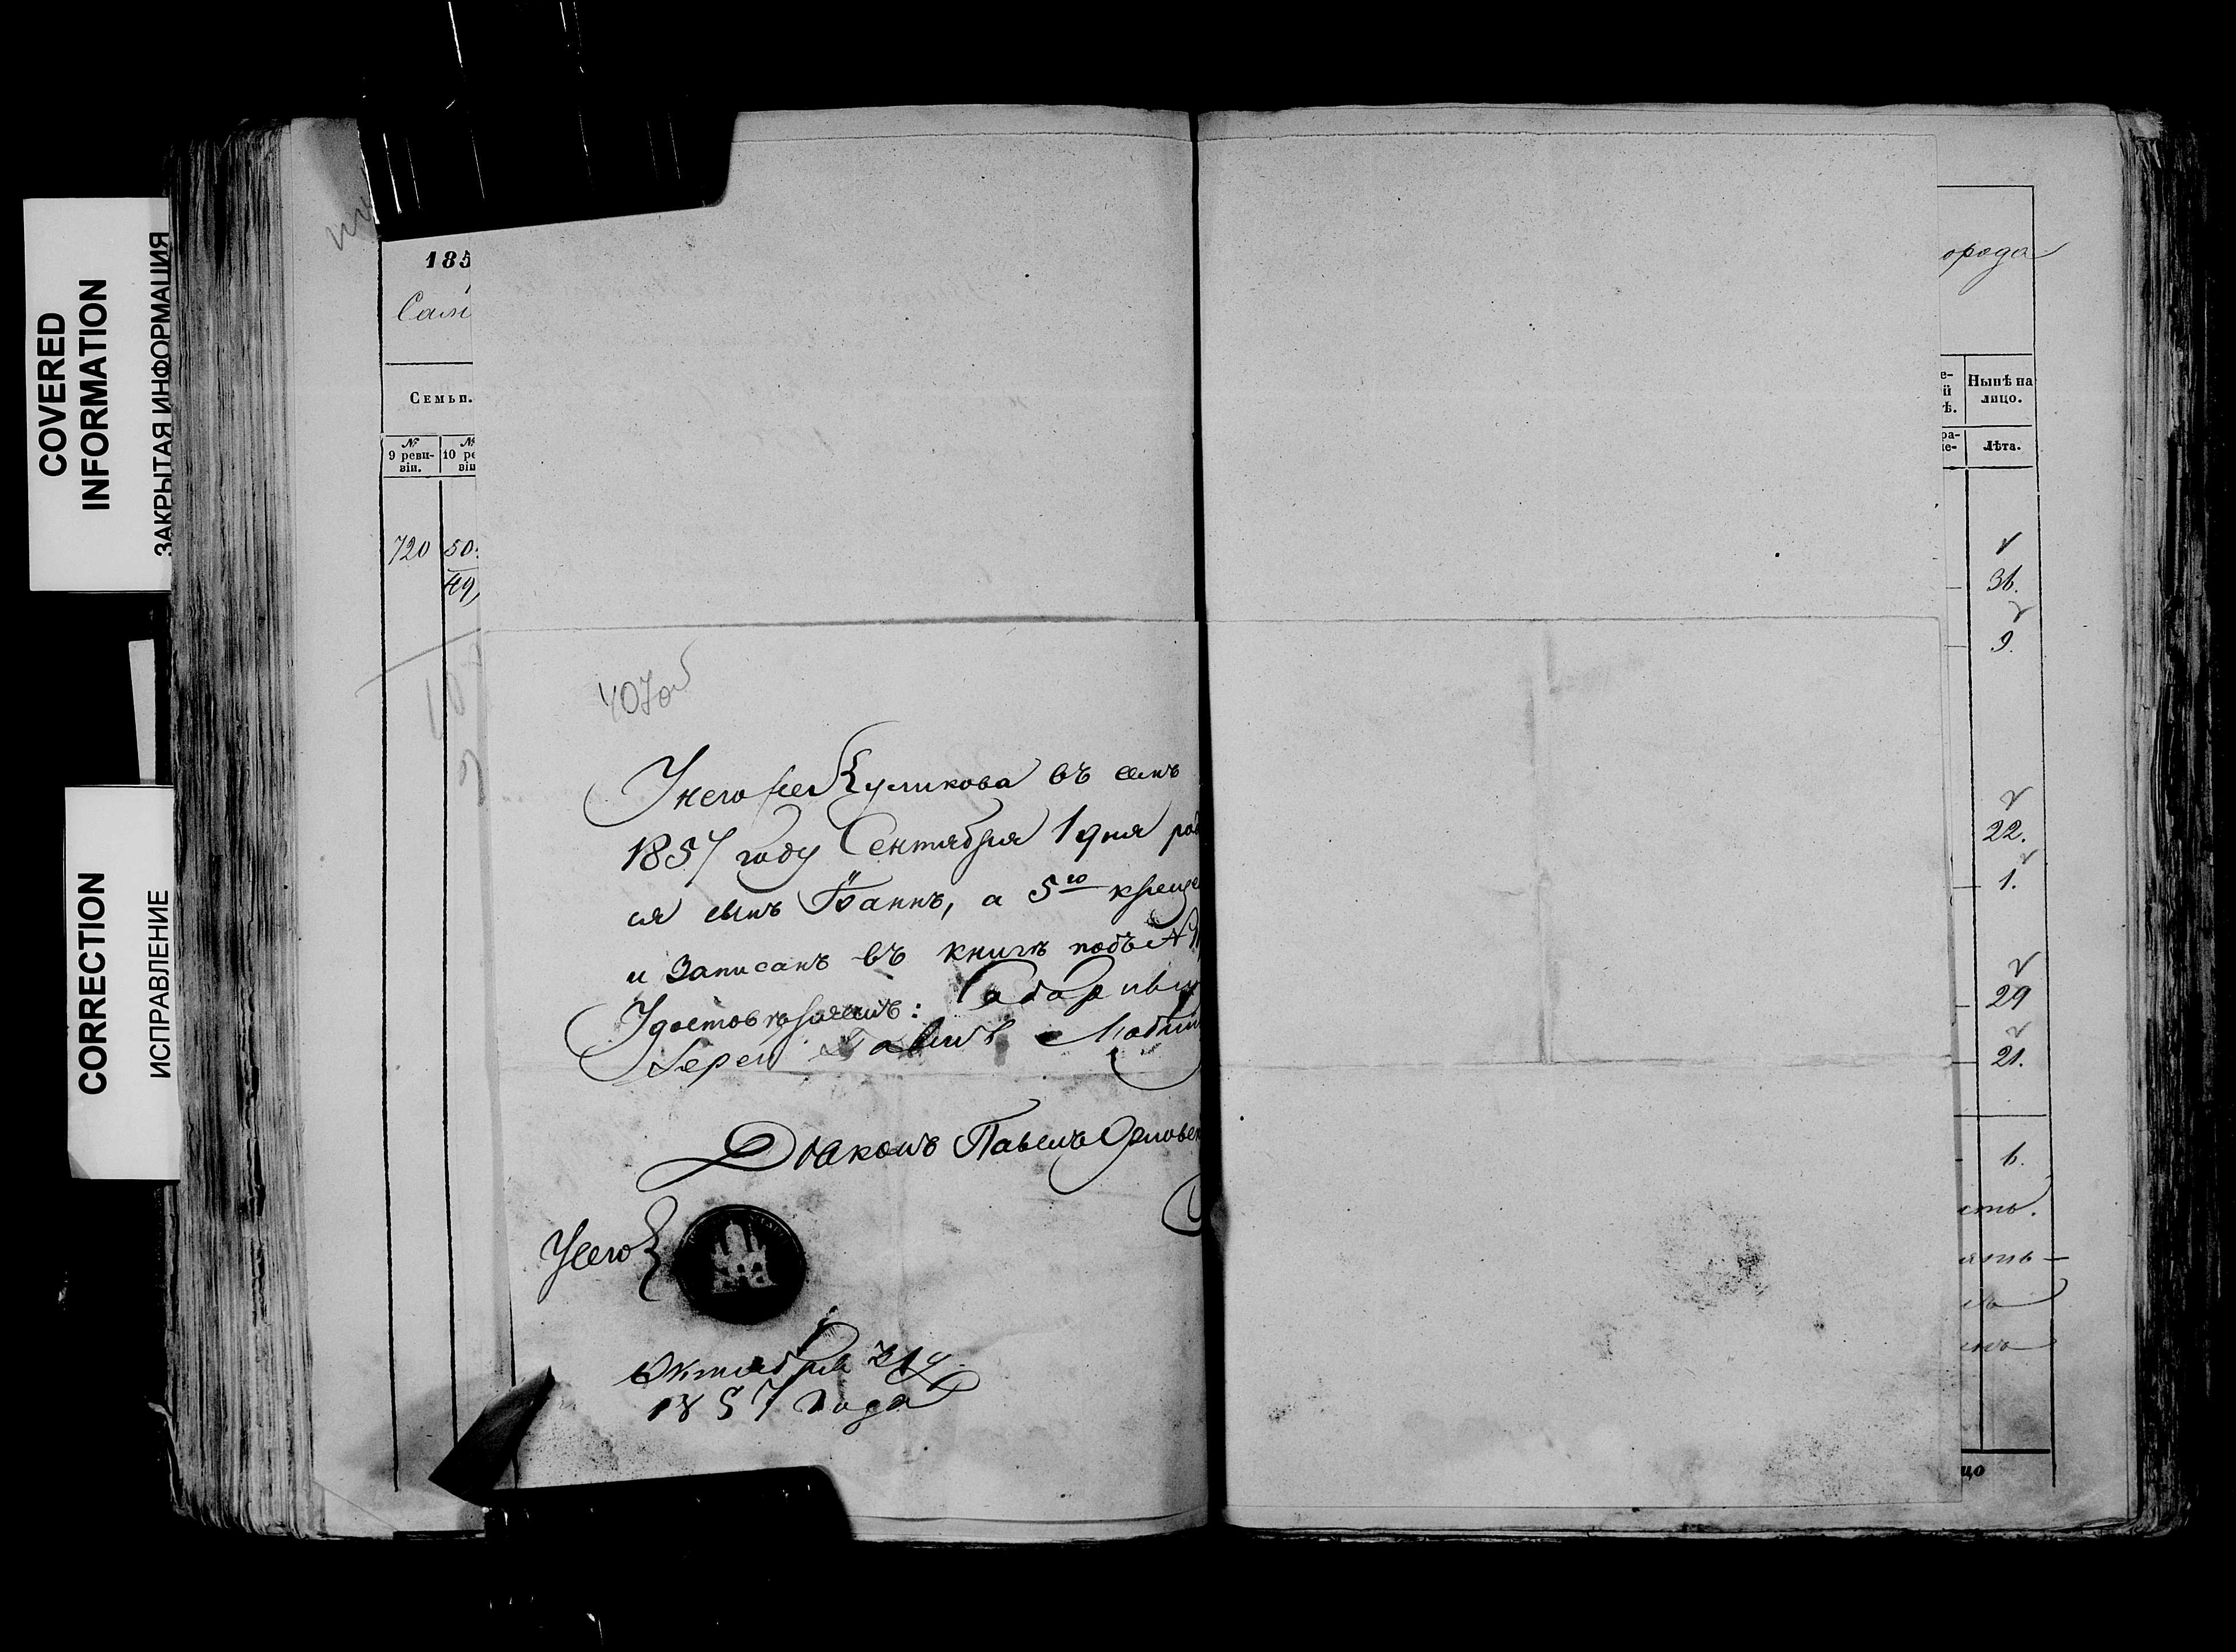 COVERED
INFORMATION
ЗАКРЫТАЯ ИНФОРМАЦИЯ
CORRECTION
ИСПРАВЛЕНИЕ
185
Сам
Семьи.
№ 9 ревизіи.
№ 10 ре
віи
720
50.
49,
407об
У него же Куликова въ семъ
1857 году Сентября 1 дня род
ся сынъ Іоаннъ, а 5го креще
и записанъ въ книгѣ подъ №
Удостовѣряемъ: Соборный
Іерей
Діаконъ Павелъ Орловск
Усего
Октября 21 д.
1857 года
орода
е-
й
ѣ.
Нынѣ на
лицо.
ра-
не-
Лѣта.
36.
9.
22.
1.
29
21.
6.
сть.
ять
цо